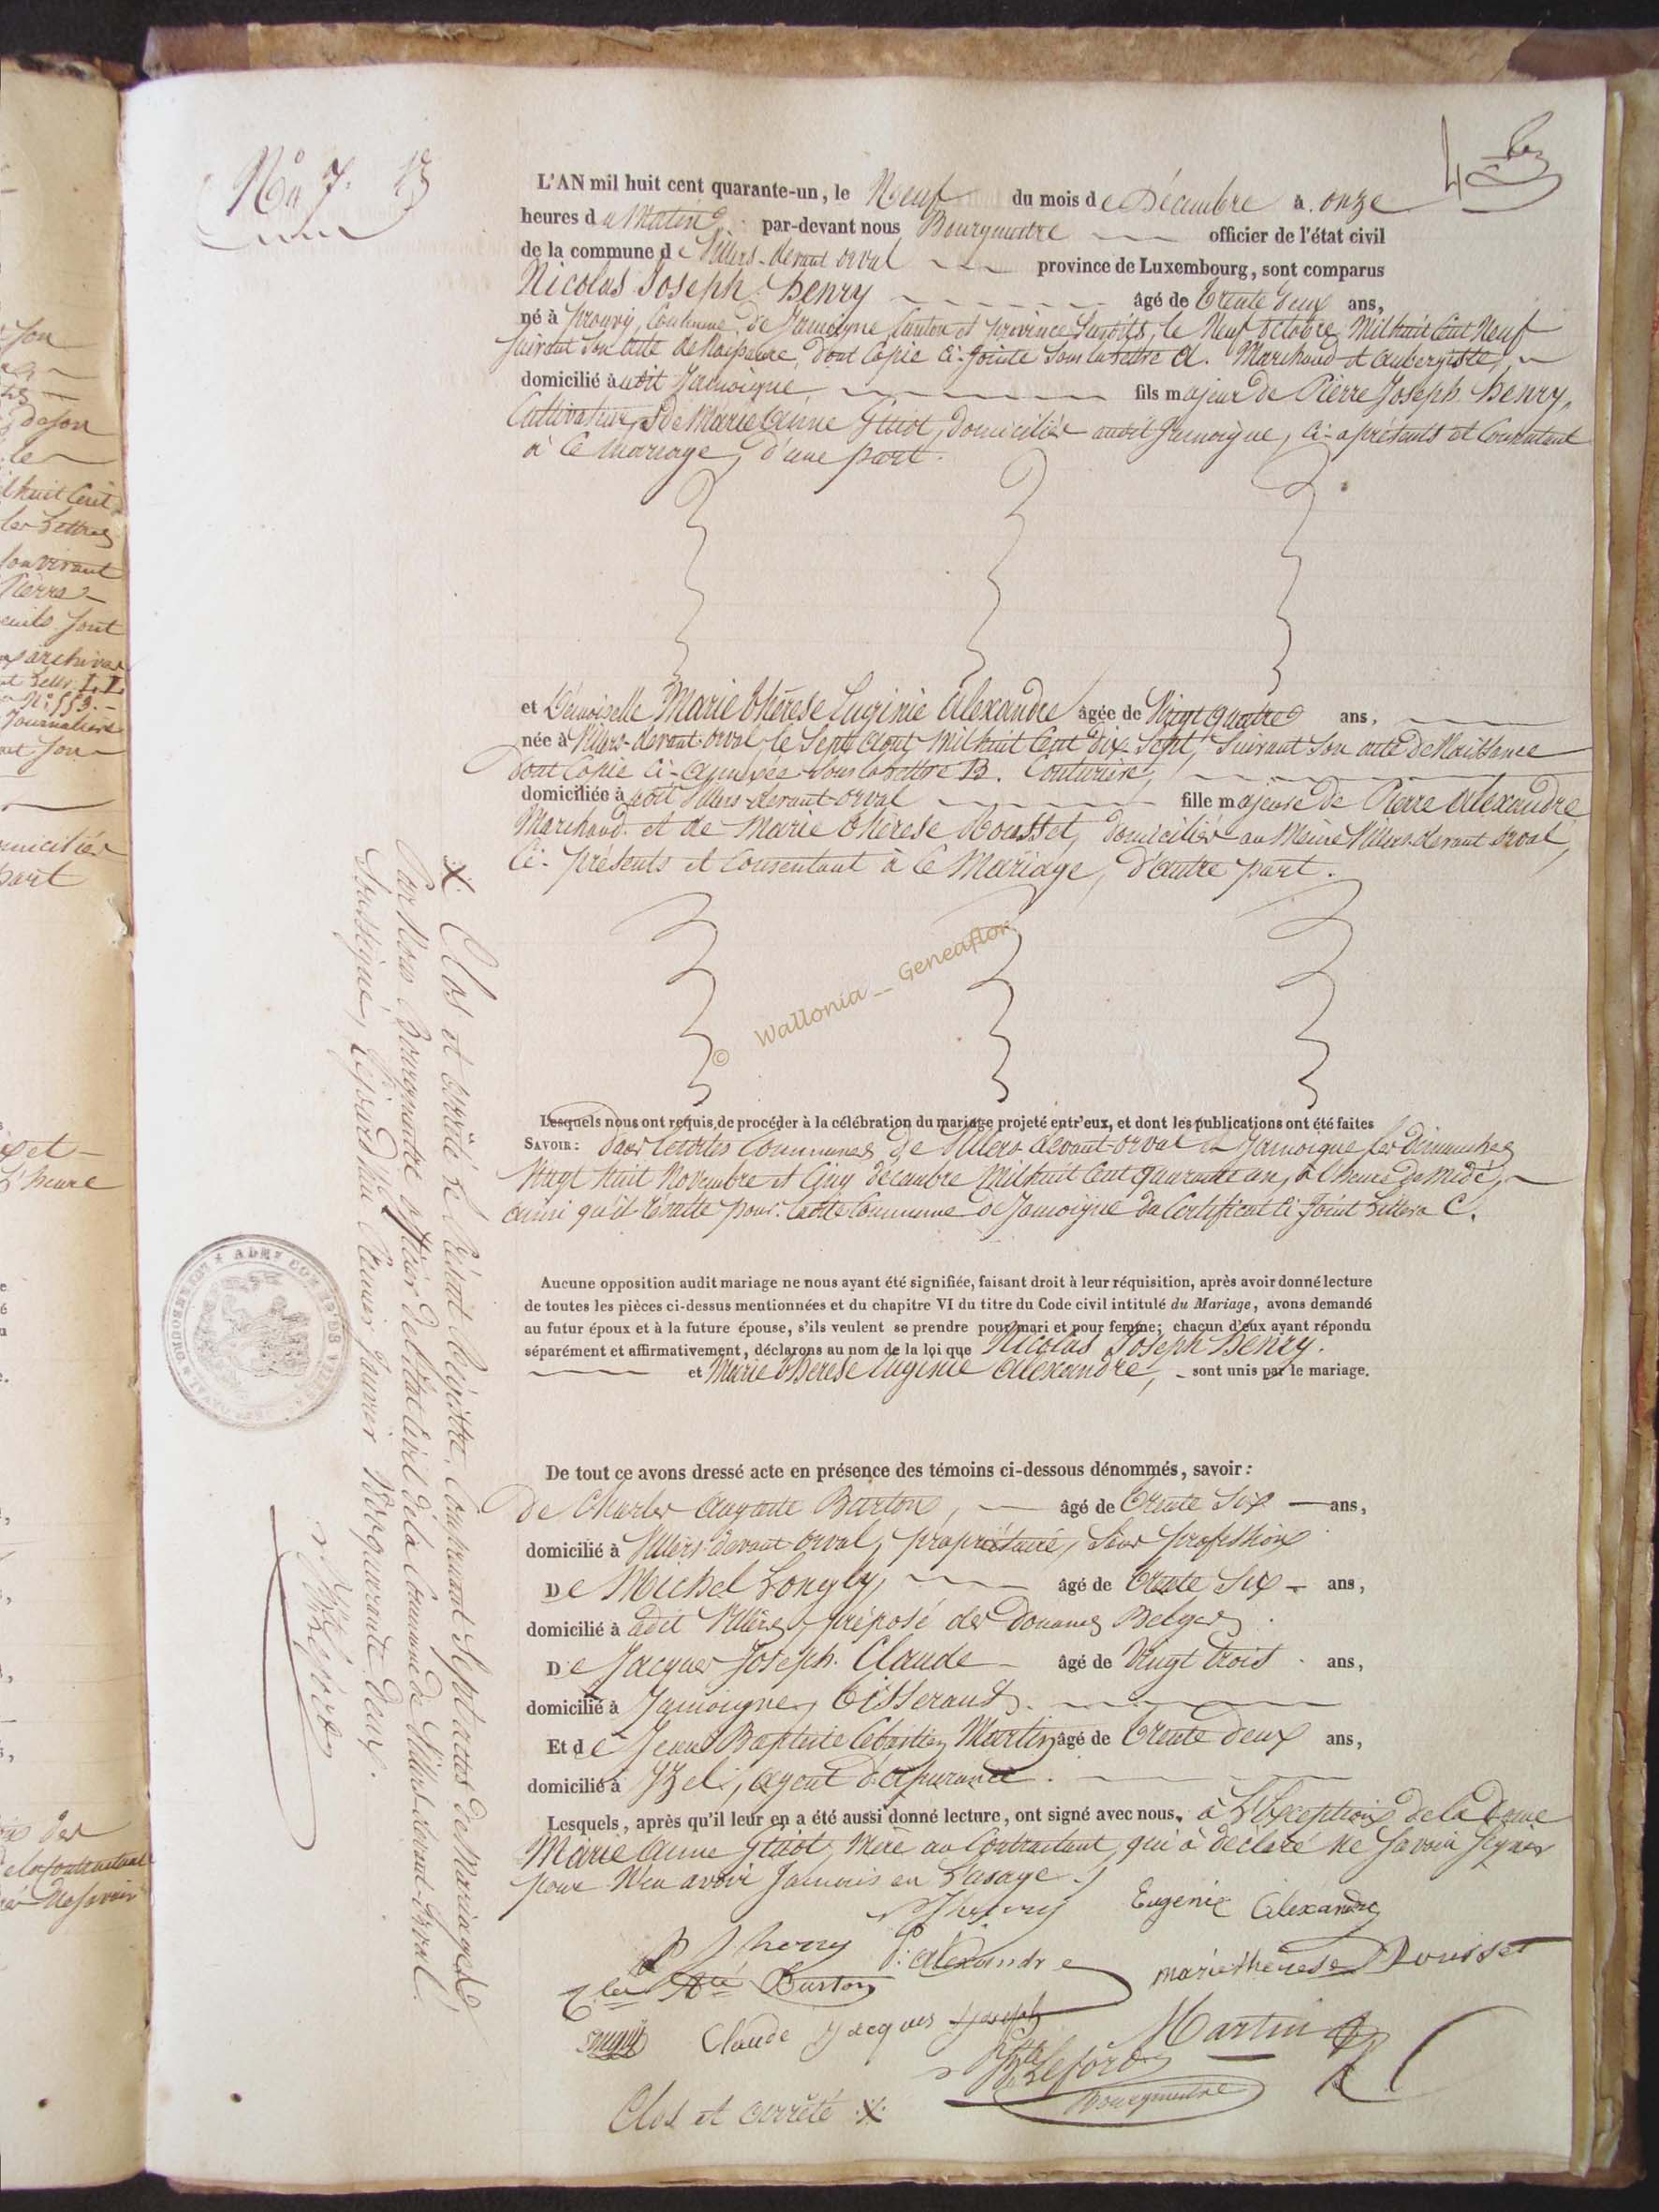 No 7.
4
L'AN mil huit cent quarante-un, le Neuf du mois de Décembre à onze
heures du Matin par-devant nous Bourgmestre officier de l'état civil
de la commune de Villers-devant orval province de Luxembourg, sont comparus
Nicolas Joseph henry âgé de trente deux ans,
né à prouvy, Commune de Jamoigne Canton et province susdits, le Neuf octobre Mil huit Cent Neuf
suivant son acte de Naissance, dont Copie Ci-Jointe sous la lettre A. Marchand et aubergiste,
domicilié audit Jamoigne, fils majeur de Pierre Joseph henry,
Cultivateur, & de Marie Anne Gttiot, domiciliés audit Jamoigne, Ci-après présents et Consentant
à Ce mariage, d'une part.
et Démoiselle Marie thérèse Euginie Alexandre âgée de Vingt quatre ans,
née à Villers-devant-orval, le Sept aout Mil huit Cent dix-Sept, suivant son acte de Naissance
dont Copie Ci-annexée sous la lettre B. Couturière,
domiciliée à udit Villers-devant-orval fille majeure de Pierre Alexandre
Marchand et de Marie thérèse Rousset, domiciliés au Même Villers-devant orval,
Ci-présents et Consentant à Ce Mariage, d'autre part.
© Wallonia_Geneaflor
Lesquels nous ont requis de procéder à la célébration du mariage projeté entr'eux, et dont les publications ont été faites
SAVOIR: dans lesdites Communes de Villers-devant-orval et Jamoigne les dimanches
Vingt huit Novembre et Cinq décembre Mil huit Cent quarante un, à l'heure de midi,
ainsi qu'il résulte pour ladite Commune de Jamoigne du Certificat Ci-Joint Littera C.
Aucune opposition audit mariage ne nous ayant été signifiée, faisant droit à leur réquisition, après avoir donné lecture
de toutes les pièces ci-dessus mentionnées et du chapitre VI du titre du Code civil intitulé du Mariage, avons demandé
au futur époux et à la future épouse, s'ils veulent se prendre pour mari et pour femme; chacun d'eux ayant répondu
séparément et affirmativement, déclarons au nom de la loi que Nicolas Joseph Henry.
et Marie thérèse Euginie Alexandre, sont unis par le mariage.
De tout ce avons dressé acte en présence des témoins ci-dessous dénommés, savoir:
de Charles Auguste Burton, âgé de trente Six ans,
domicilié à Villers-devant orval, propriétaire, Sans profession
De Michel Longly, âgé de trente Six ans,
domicilié à udit Villers, préposé des Douanes Belges.
De Jacques Joseph Claude âgé de Vingt trois ans,
domicilié à Jamoigne, tisserand.
Et de Jean Baptiste Martin âgé de trente deux ans,
domicilié à Izel, agent d'assurance.
Lesquels, après qu'il leur en a été aussi donné lecture, ont signé avec nous, à L'Exception de la Dame
Marie Anne Gttiot, Mère au Contractant, qui à déclaré Ne Savoir Signer
pour N'en avoir Jamais eu L'usage.
Eugenie Alexandre
P J henry P: alexandre mariethérèse Rousset
Burton
Claude Jacques Joseph Martin
Bourgmestre
Clos et arrêté X
X Clos et arrêté le présent Régistre, Comprenant Sept actes de Mariages
Par Nous Bourgmestre officier de l'état Civil de la Commune de Villers-devant-orval
Soussigné, Cejourd'hui Premier Janvier 18cquarante deux.